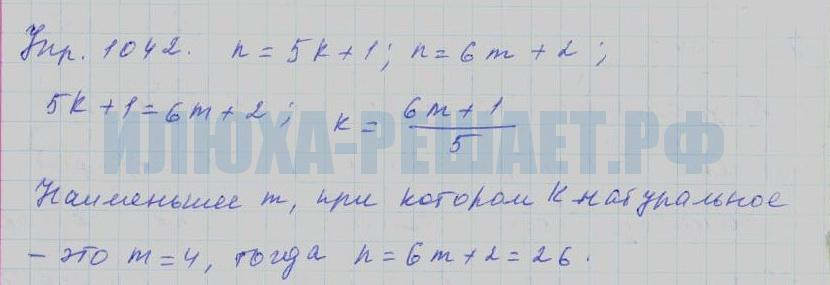 Упр. 1042. n = 5k + 1; n = 6m + 2;
5k + 1 = 6m + 2; k = (6m + 1)/5
ИЛЮХА-РЕШАЕТ.РФ
Наименьшее m, при котором k натуральное
– это m = 4, тогда n = 6m + 2 = 26.